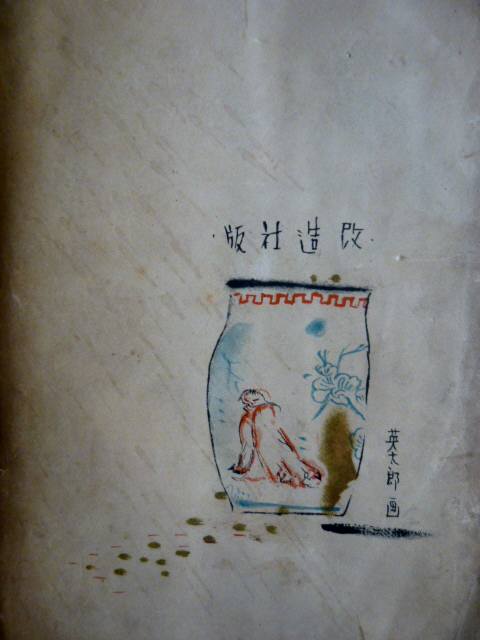 改造社版
英太郎画